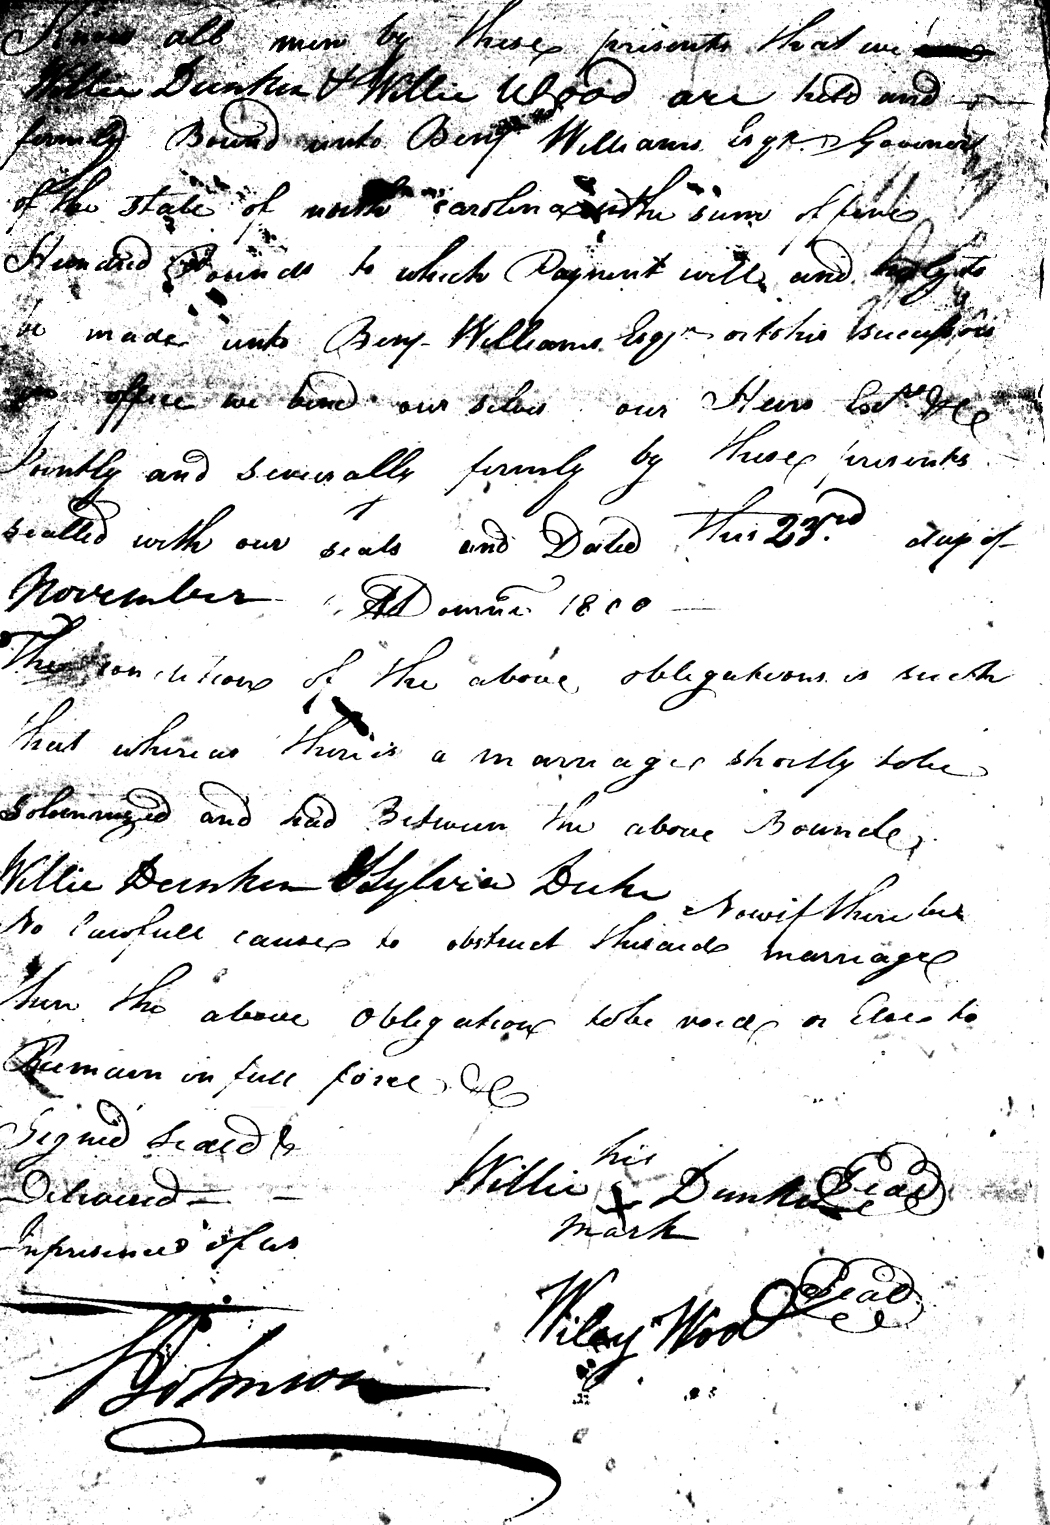 Know all men by these presents that we
Willie Dunkin & Willie Wood are held and
firmly Bound unto Benj Williams Esqr. Governor
of the State of north carolina in the sum of five
Hundred Pounds to which Payment will and truly to
be made unto Benj Williams Esqr or to his successors
in office we bind our selves our Heirs Exrs &c
Jointly and severally firmly by these presents
sealled with our seals and Dated this 23rd day of
November AD omini 1800
The condition of the above obligations is such
that whereas there is a marriage shortly to be
solemnized and had Between the above Bound
Willie Dunkin & Sylvia Duke Now if there be
No lawfull cause to obstruct the said marriage
then the above obligation to be void or Else to
Remain in full force &c
Signed Seald &
Delivered
In presence of us
Willie his X mark Dunkin Seal
Wiley Wood Seal
Johnson